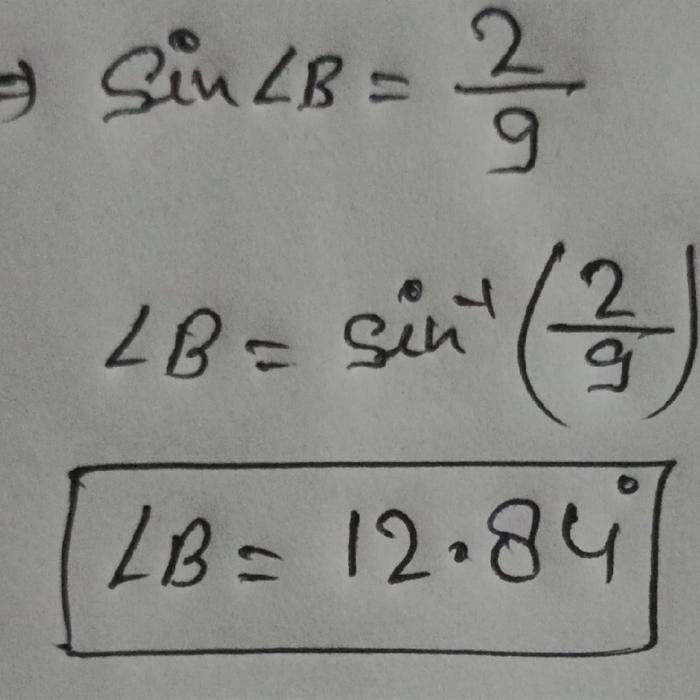 ⇒ sin∠B = 2/9
∠B = sin⁻¹(2/9)
∠B = 12.84°